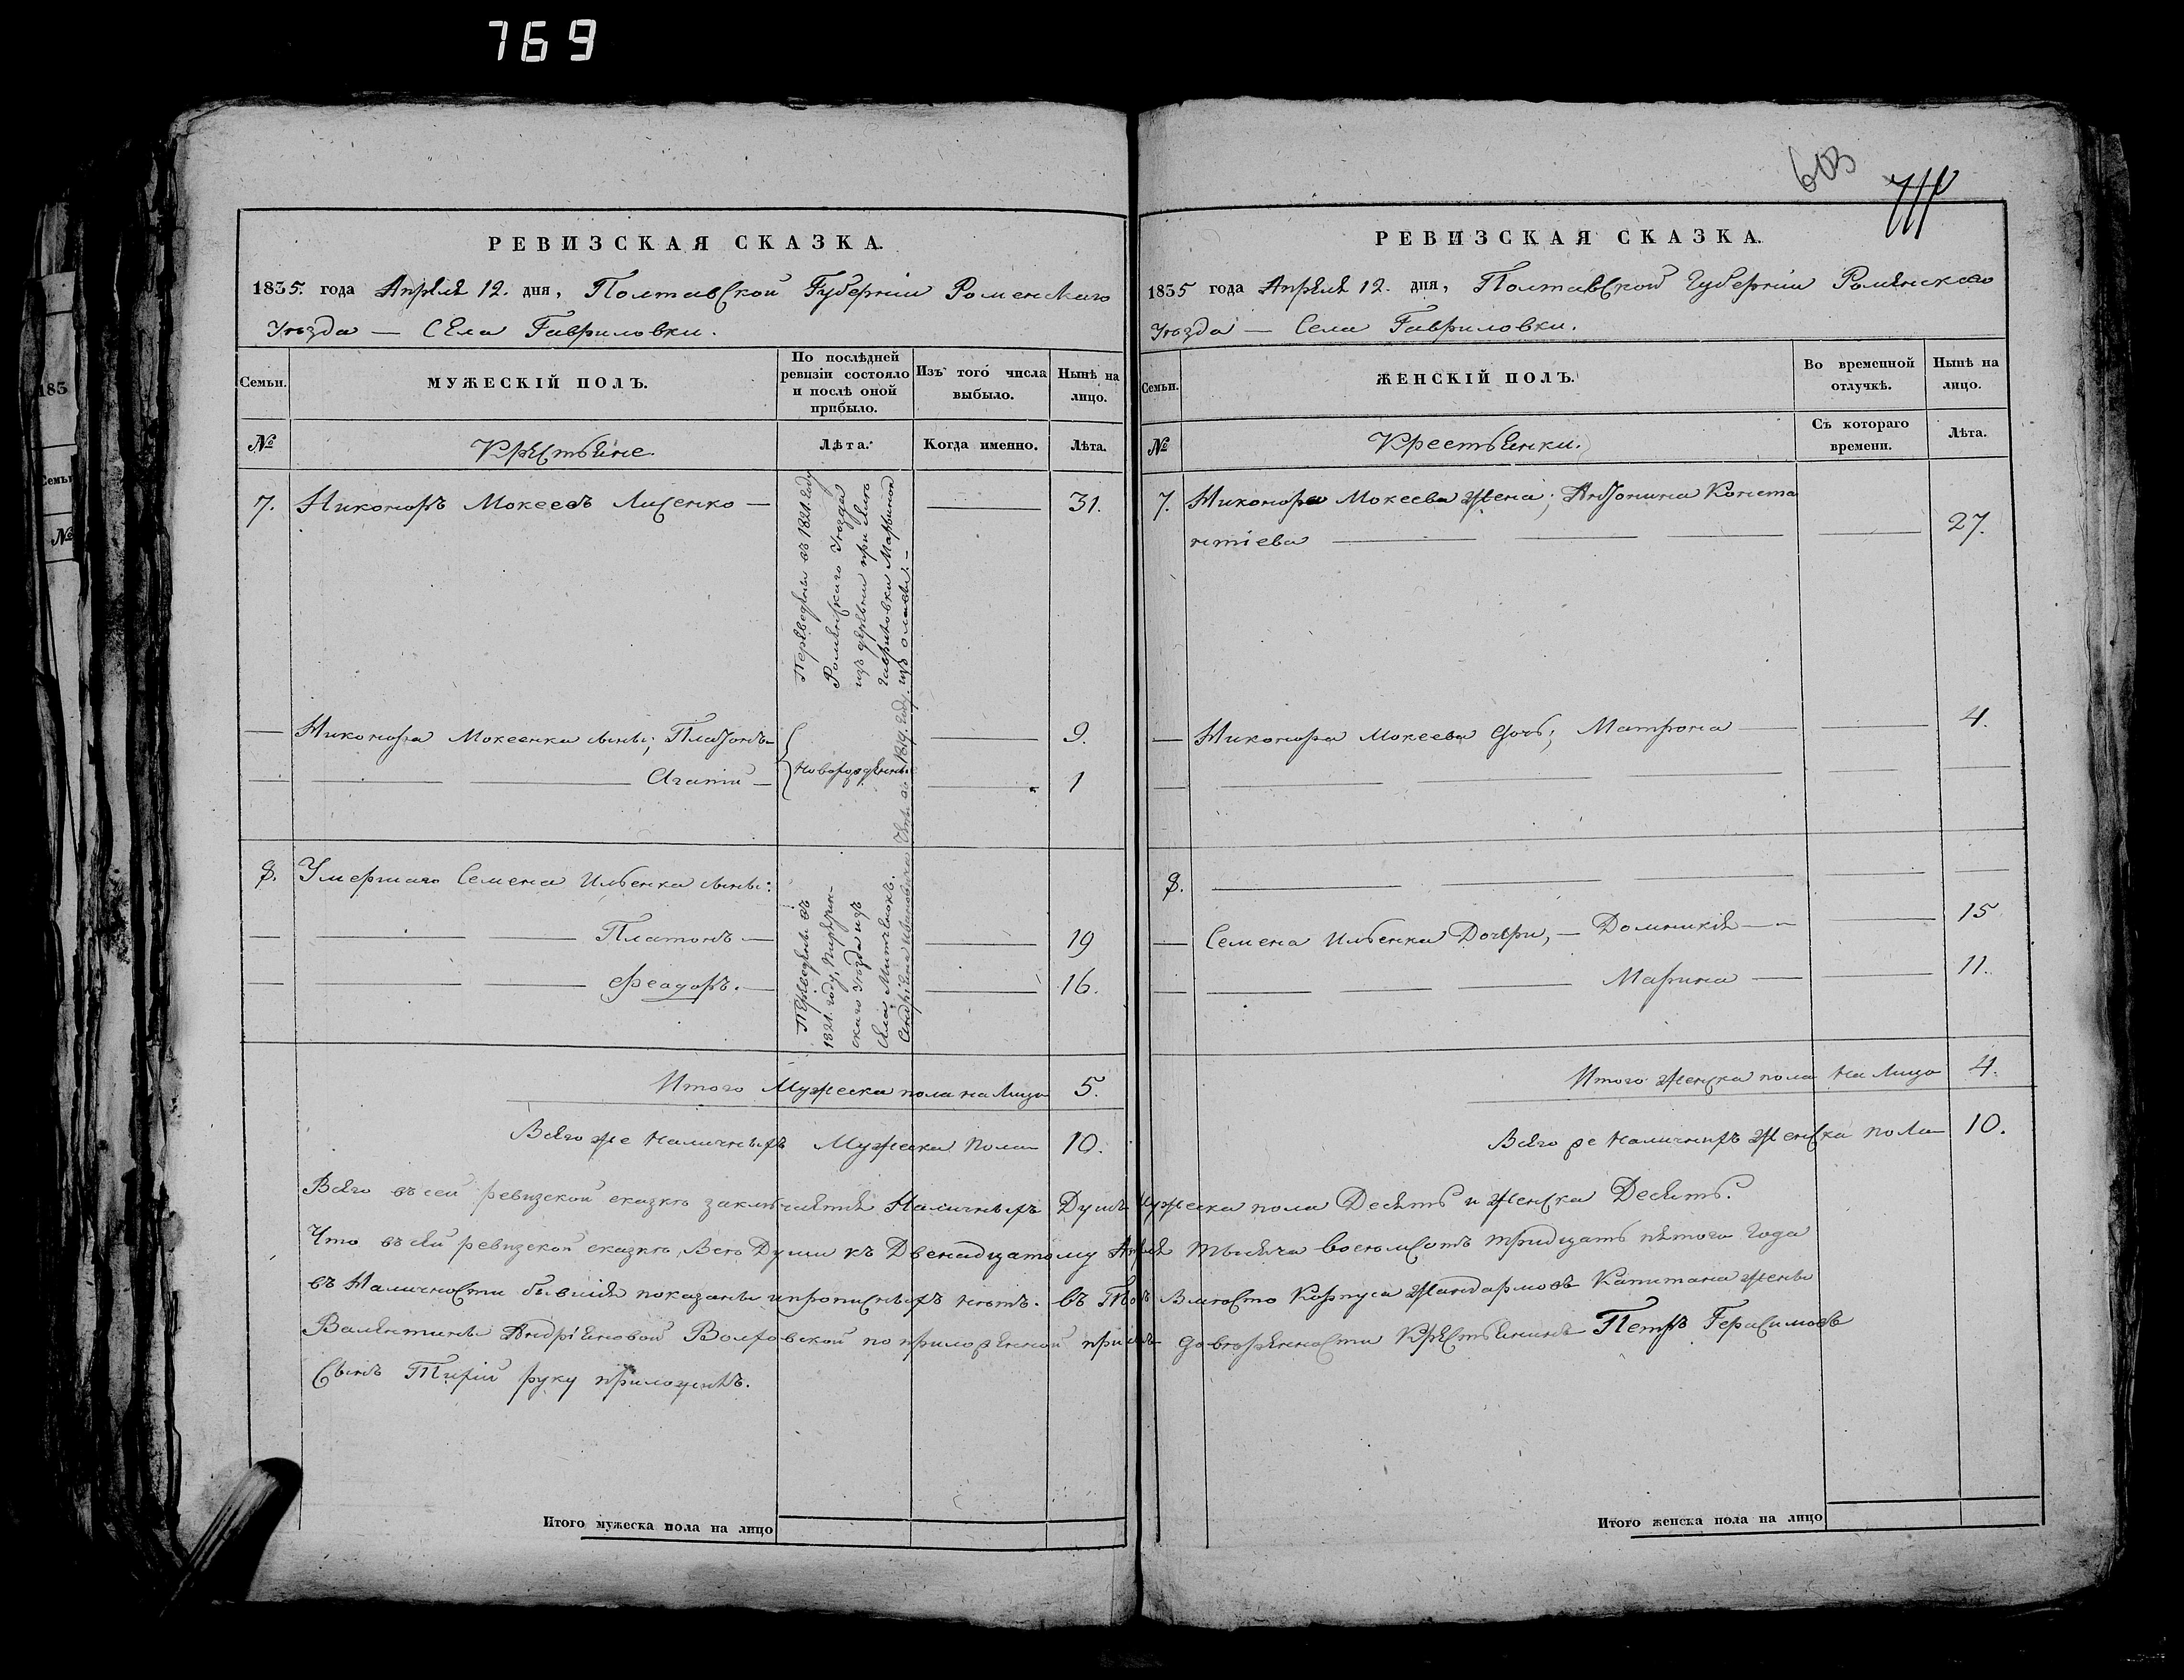 769
603
РЕВИЗСКАЯ СКАЗКА.
1835. года Апреля 12. дня, Полтавской Губерніи Роменскаго
Уѣзда — Села Гавриловки.
Семьи.
МУЖЕСКІЙ ПОЛЪ.
По послѣдней ревизіи состояло и послѣ оной прибыло.
Изъ того числа выбыло.
Нынѣ на лицо.
№
Крестьяне.
Лѣта.
Когда именно.
Лѣта.
7. Никоноръ Мокеевъ Лисенко — 31.
Переведены въ 1821. году
Роменскаго Уѣзда
изъ деревни при
Марьиной
Никонора Мокеенка сыны; Платонъ 9.
Агапій — 1
Новорожденны
8. Умершаго Семена Ильенка сыны:
Платонъ — 19
Феодоръ. — 16.
Переведены въ
1821. году, Пирятин-
скаго Уѣзда изъ
села Митченокъ.
Итого Мужеска пола на Лицо 5.
Всего же наличныхъ Мужеска Пола 10.
РЕВИЗСКАЯ СКАЗКА.
1835 года Апреля 12. дня, Полтавской Губерніи Роменскаго
Уѣзда — Села Гавриловки.
Семьи.
ЖЕНСКІЙ ПОЛЪ.
Во временной отлучкѣ.
Нынѣ на лицо.
№
Крестьянки.
Съ котораго времени.
Лѣта.
7. Никонора Мокеева жена; Антонина Конста
нтіева 27.
Никонора Мокеева дочь; Матрона 4.
8.
Семена Ильенка Дочери, — Домникія 15
Марина 11.
Итого женска пола на Лицо 4.
Всего же наличныхъ женска пола 10.
Всего въ сей ревизской сказкѣ заключается Наличныхъ Душъ Мужеска пола Десять и женска Десять.
Что въ сей ревизской сказкѣ, Всѣ Души къ Двенадцатому Апреля тысяча восемсотъ тридцать пятого Года
въ Наличности бывшія показаны и прописныхъ нѣтъ. въ Томъ Вместо Корпуса Жандармовъ Капитана жены
Валентины Андріяновой Волховской по приложенной при семъ доверенности Крестьянинъ Петръ Герасимовъ
Сынъ руку приложилъ.
Итого мужеска пола на лицо
Итого женска пола на лицо
183
Семьи
№